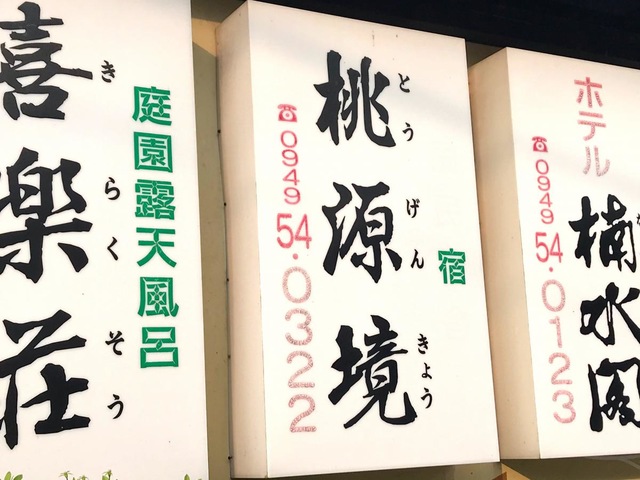 庭園露天風呂
喜樂荘
きらくそう
宿
桃源境
とうげんきょう
☎0949 54・0322
ホテル
楠水閣
☎0949 54・0123